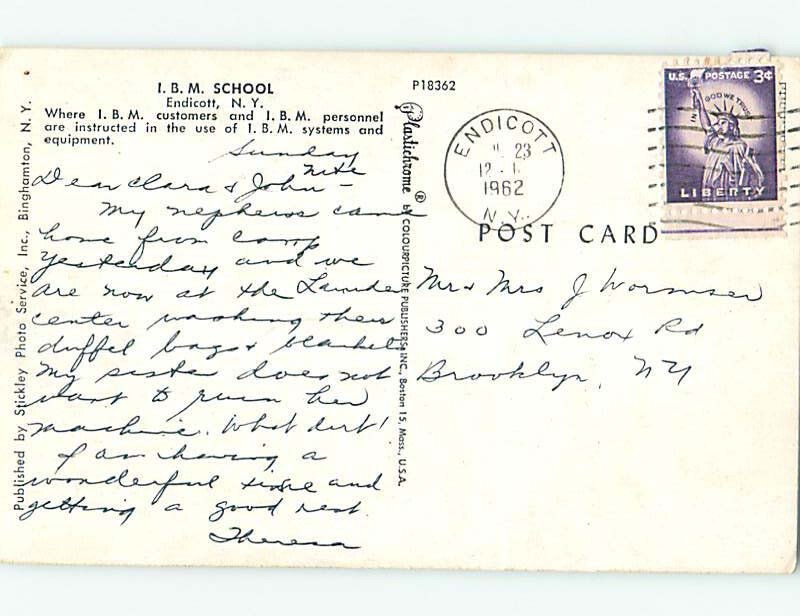 I. B. M. SCHOOL
Endicott, N. Y.
Where I. B. M. customers and I. B. M. personnel
are instructed in the use of I. B. M. systems and
equipment.
P18362
Published by Stickley Photo Service, Inc., Binghamton, N. Y.
Plastichrome ® by COLOURPICTURE PUBLISHERS, INC., Boston 15, Mass., U.S.A.
Sunday
nite
Dear Clara & John -
My nephews came
home from camp
yesterday and we
are now at the Launder
center washing their
duffel bags & blankets
My sister does not
want to ruin her
machine. What dirt!
I am having a
wonderful time and
getting a good rest.
Theresa
ENDICOTT
23
12
1962
N.Y.
U.S. POSTAGE 3¢
IN GOD WE TRUST
LIBERTY
POST CARD
Mr & Mrs J Wormser
300 Lenox Rd
Brooklyn, NY